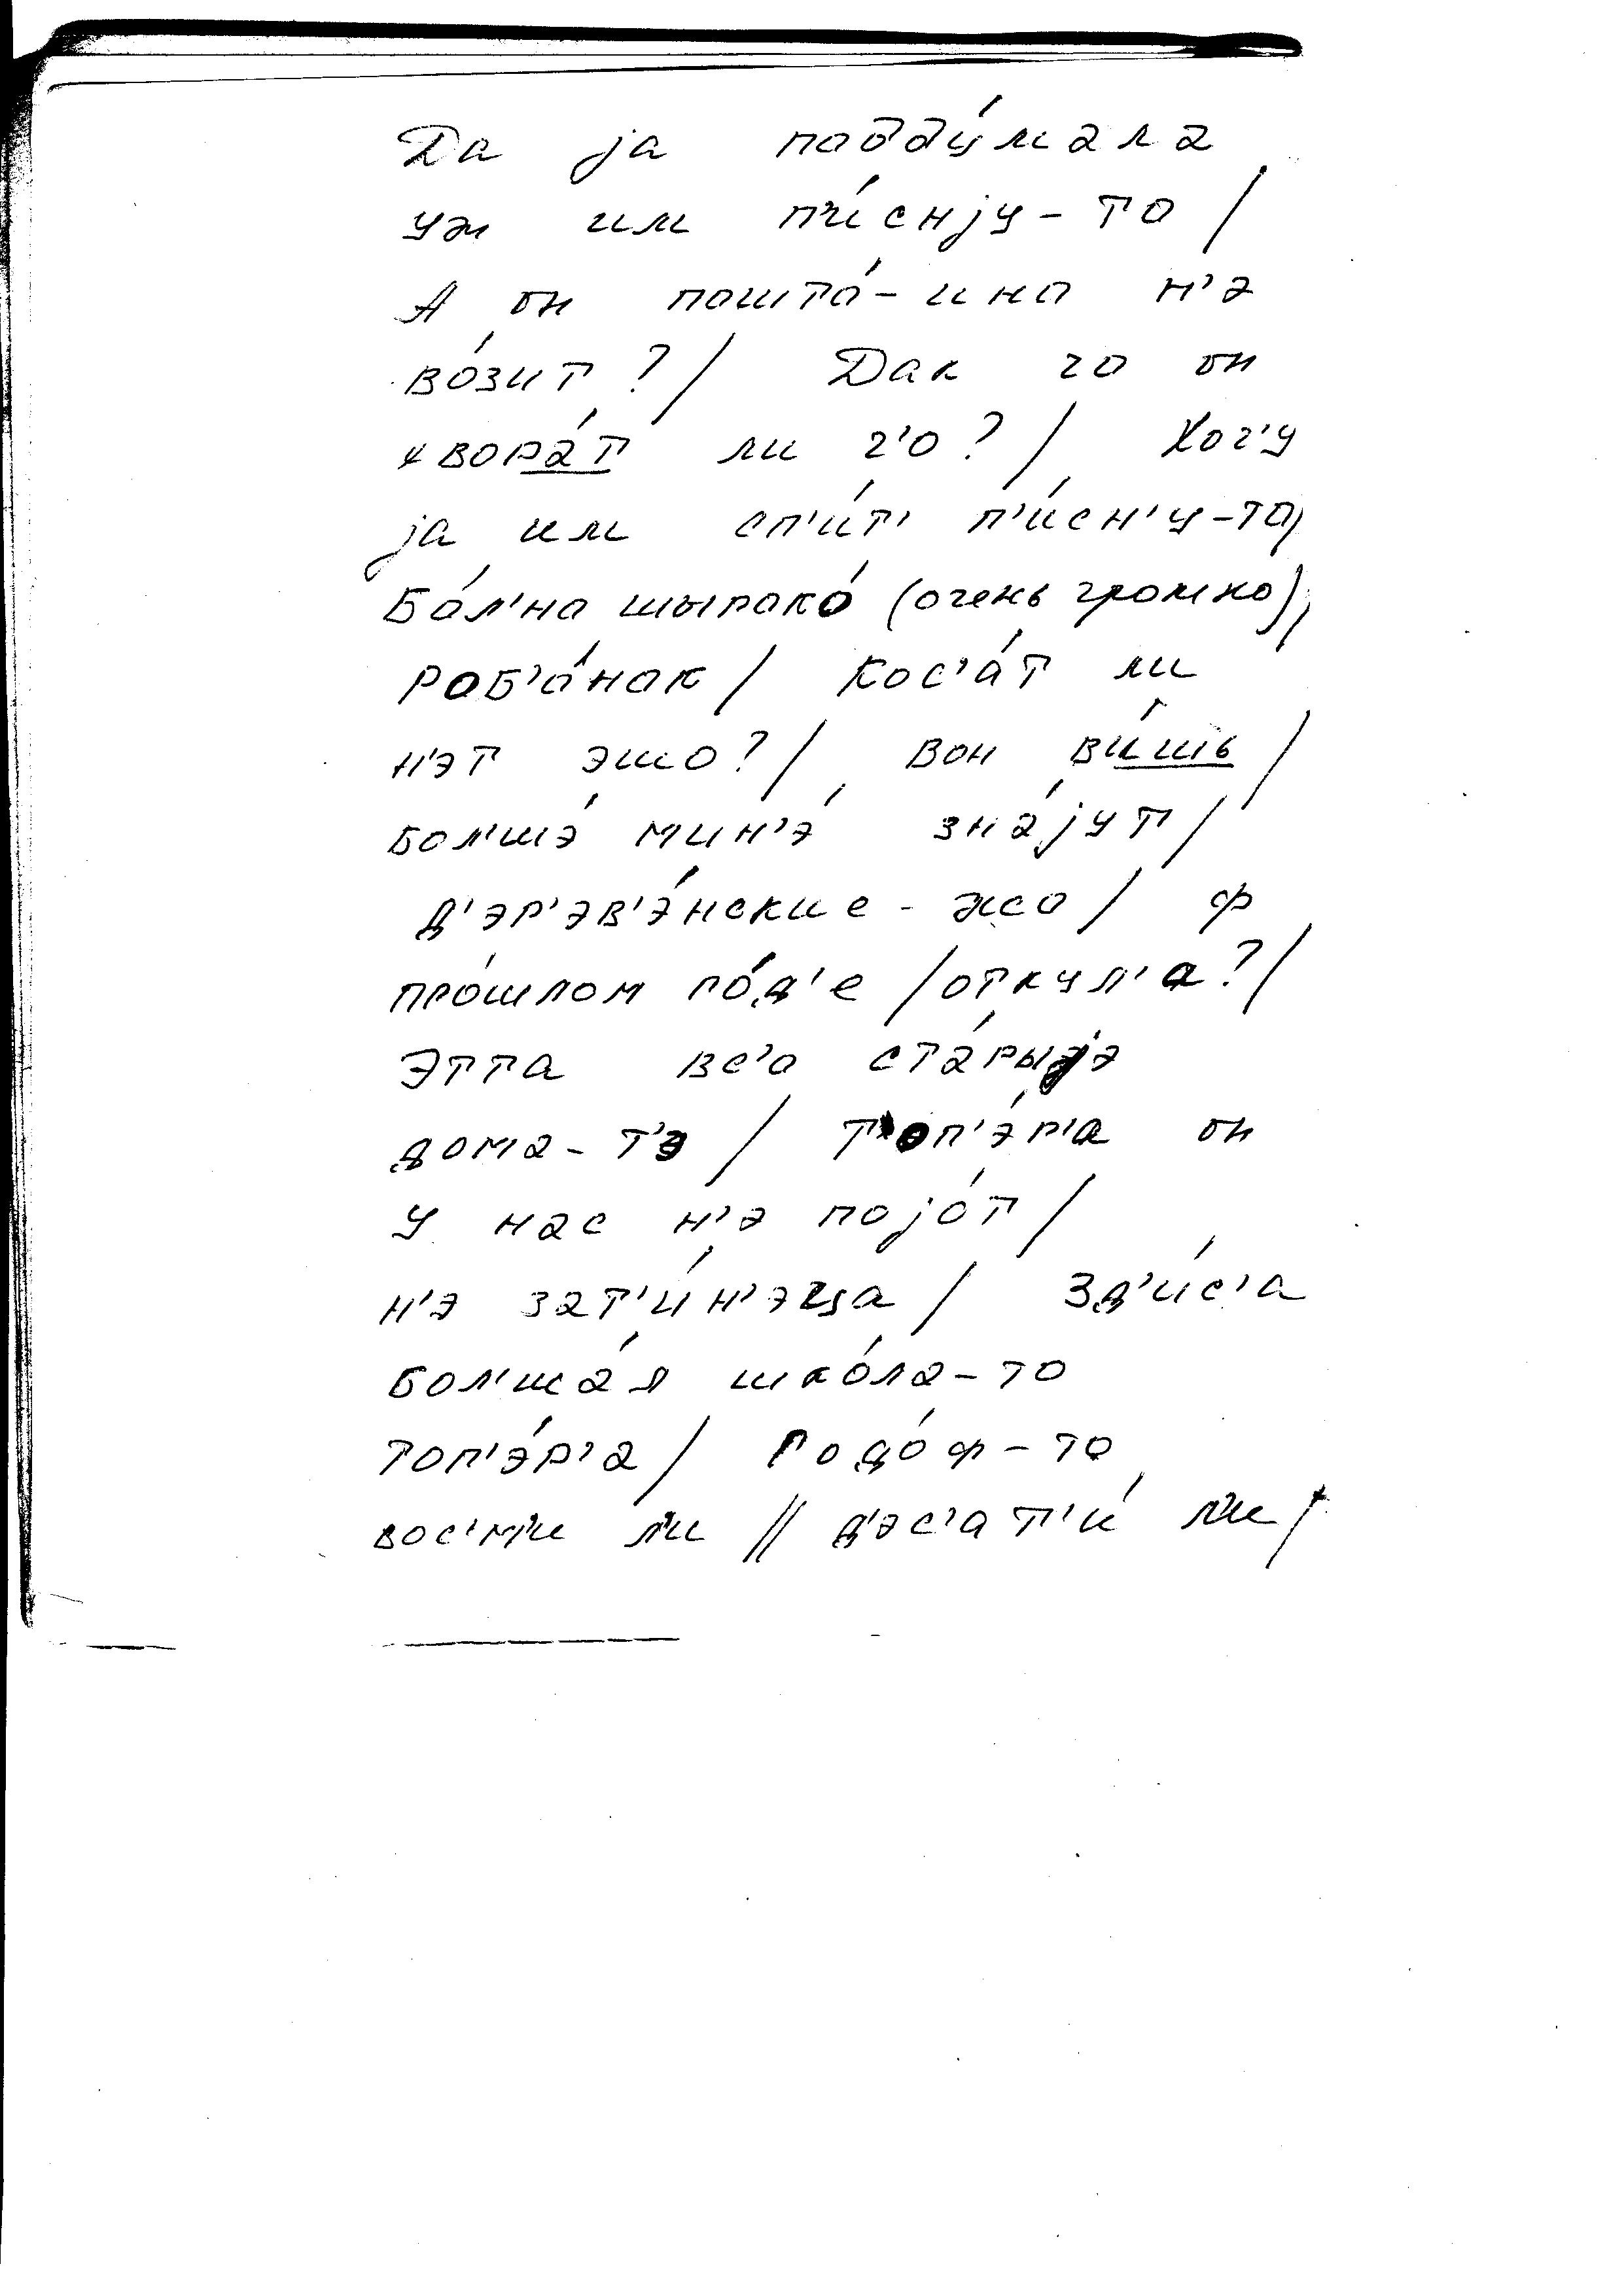 Да ја поддýмала
уж им пи́снју-то /
А он пошто́-ина н'э
во́зит ? / Дак чо он
хвора́т ли ч'о ? / Хоч'у
ја им сп'и́т' п'и́сн'у-то,
Бо́л'на шыроко́ (очень громко),
роб'а́нок / кос'а́т ли
н'эт эшо ? / Вон ви́шь /
бол'шэ́ мин'э́ зна́јут /
д'эр'эв'э́нские - жо / ф
про́шлом го́д'е / откул'а ? /
Этта вс'о ста́рыјэ
дома-т'э / Топ'э́р'а он
у нас н'э поjо́т /
н'э зат'и́н'эца / Зд'и́с'а
бол'ша́я шко́ла-то
топ'э́р'а / Годо́ф-то
вос'м'и л'и // д'эс'ат'и́ л'и /